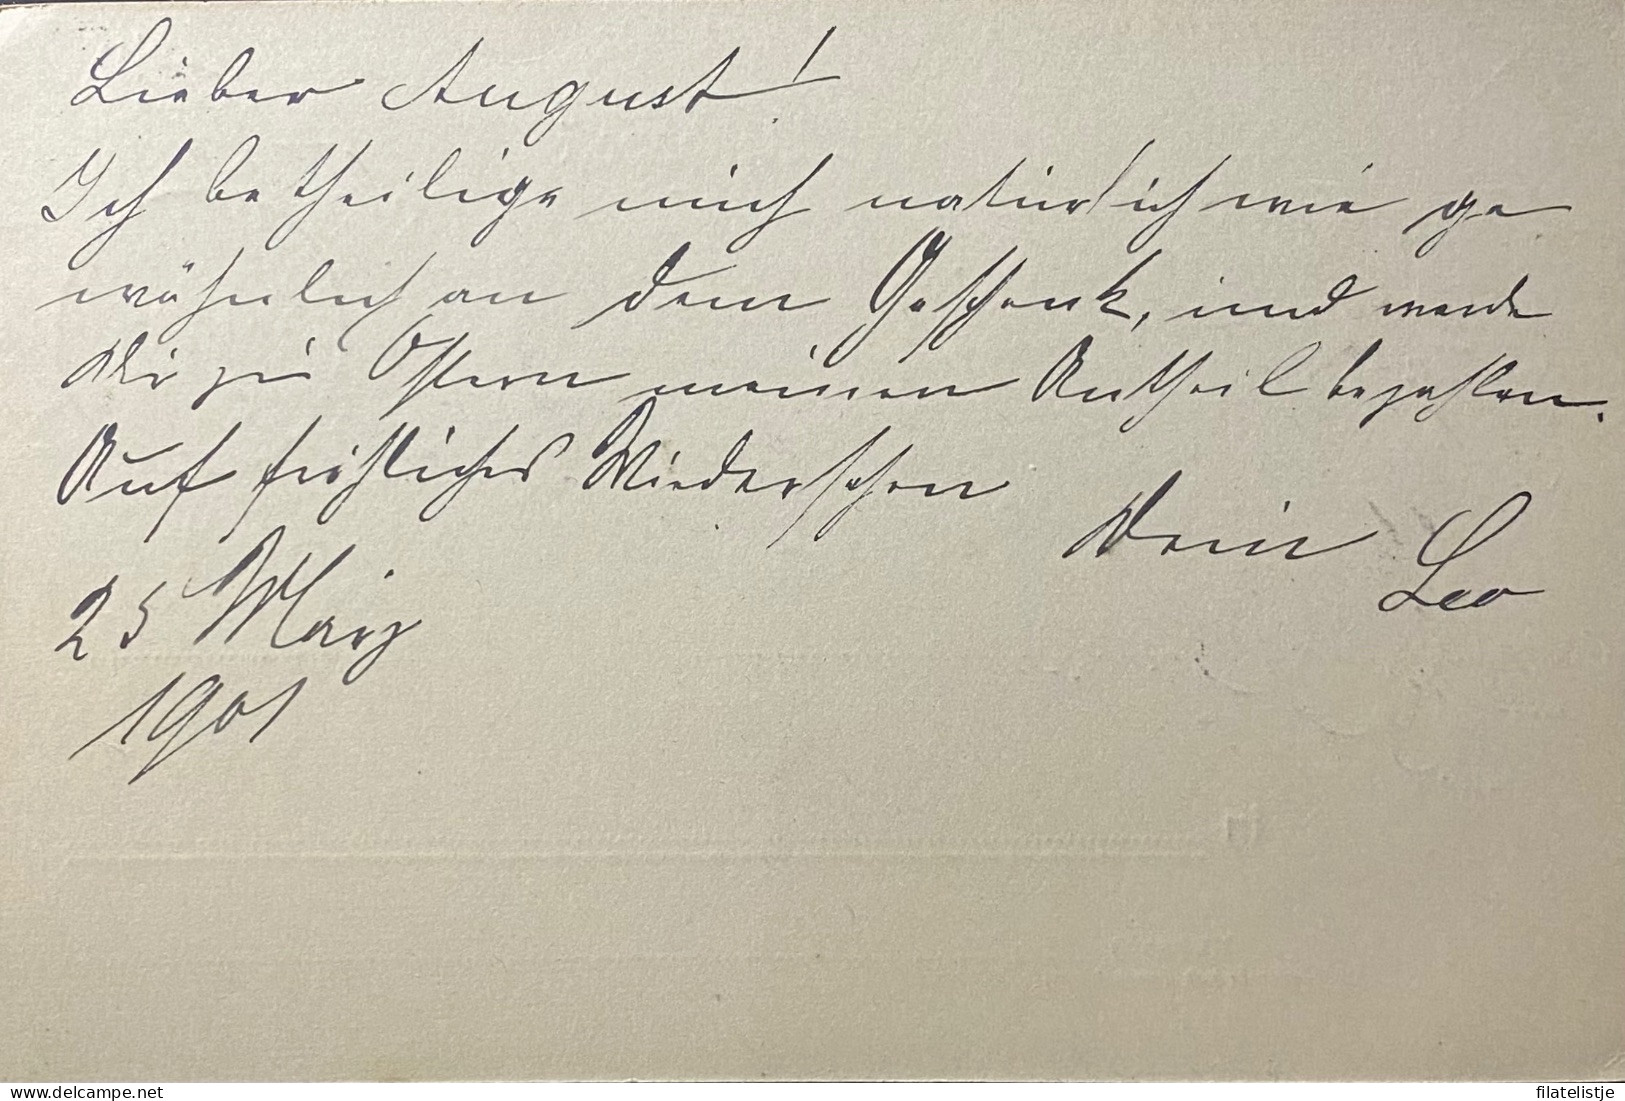 Lieber August!
Ich betheilige mich natürlich wie ge
wöhnlich an dem Geschenk, und werde
Dir zu Ostern meinen Antheil bezahlen.
Auf fröhliches Wiedersehen
Dein Leo
25 März
1901
delcampe.net
filatelistje